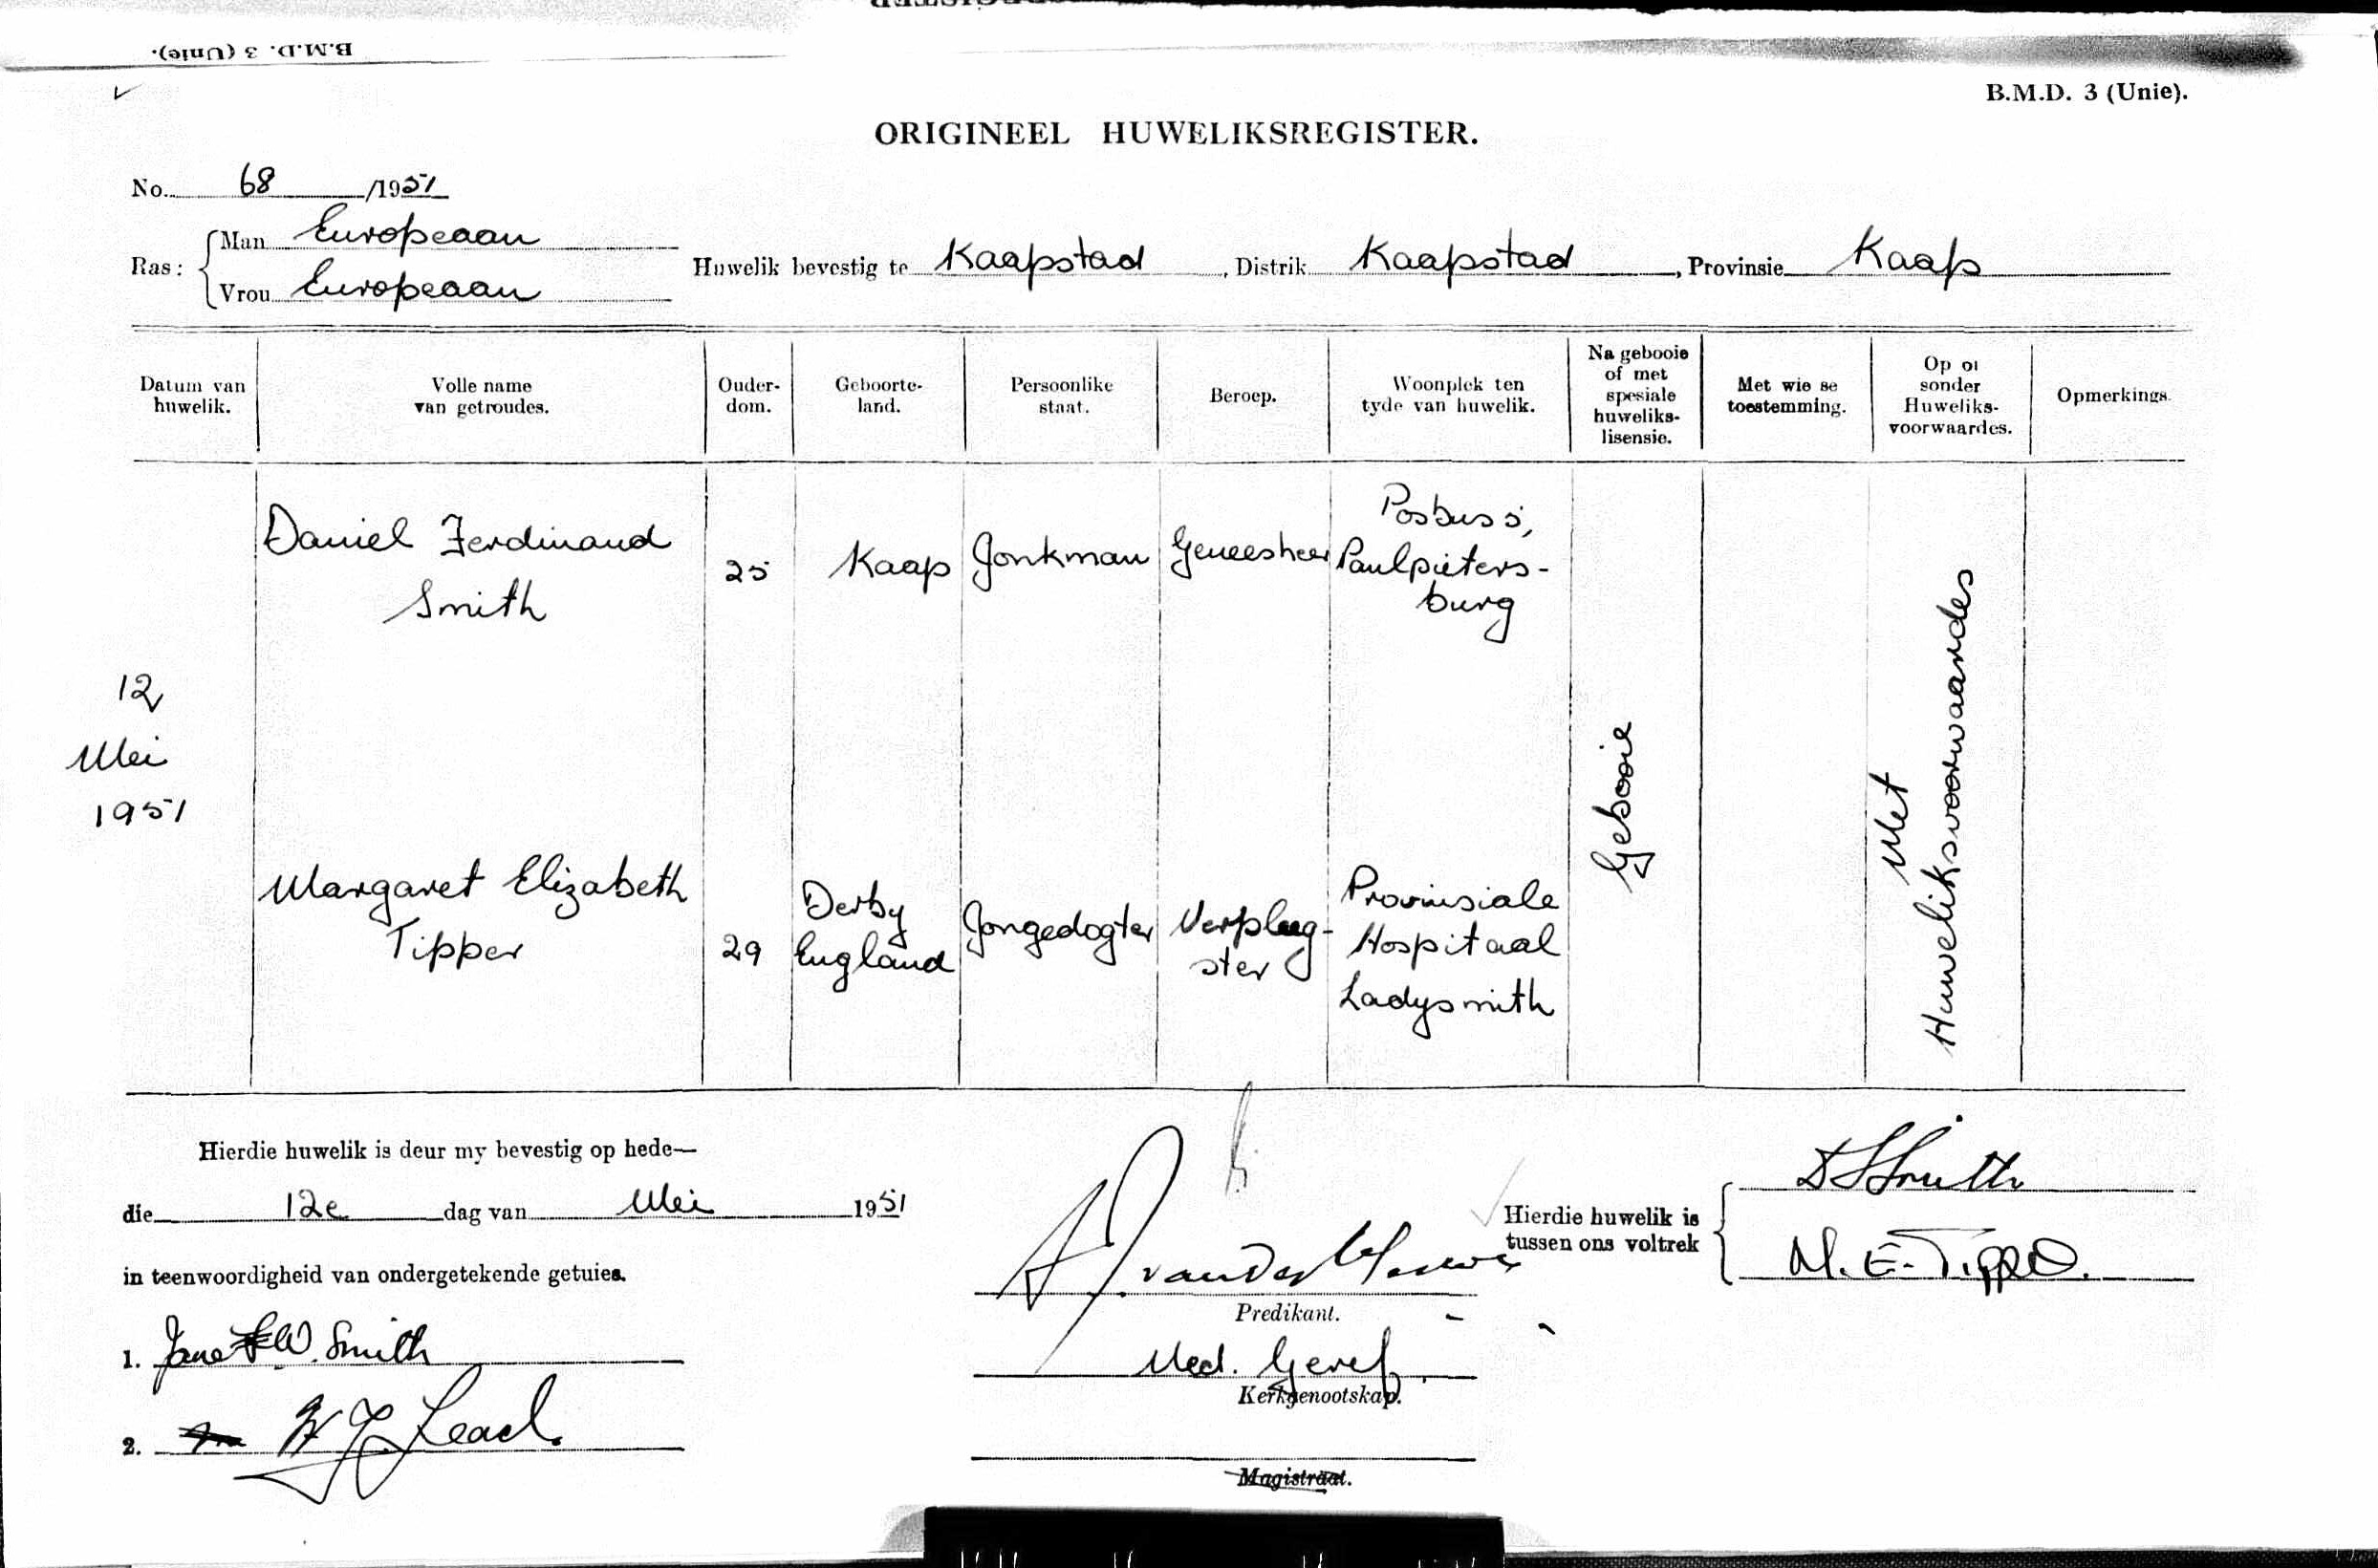 B.M.D. 3 (Unie).
B.M.D. 3 (Unie).
ORIGINEEL HUWELIKSREGISTER.
No. 68 /1951
Ras: Man Europeaan
Vrou Europeaan
Huwelik bevestig te Kaapstad, Distrik Kaapstad, Provinsie Kaap
Datum van huwelik.
Volle name van getroudes.
Ouder-dom.
Geboorte-land.
Persoonlike staat.
Beroep.
Woonplek ten tyde van huwelik.
Na gebooie of met spesiale huweliks-lisensie.
Met wie se toestemming.
Op of sonder Huweliks-voorwaardes.
Opmerkings.
12
Mei
1951
Daniel Ferdinand
Smith
25
Kaap
Jonkman
Geneesheer
Posbus 5,
Paulpieters-
burg
Margaret Elizabeth
Tipper
29
Derby
England
Jongedogter
Verpleeg-
ster
Provinsiale
Hospitaal
Ladysmith
Gebooie
Met
Huweliksvoorwaardes
Hierdie huwelik is deur my bevestig op hede—
die 12e dag van Mei 1951
in teenwoordigheid van ondergetekende getuies.
1. Jane W. Smith
2. Leach
van der Merwe
Predikant.
Ned. Geref.
Kerkgenootskap.
Magistraat.
Hierdie huwelik is
tussen ons voltrek
D F Smith
M. E. Tipper.